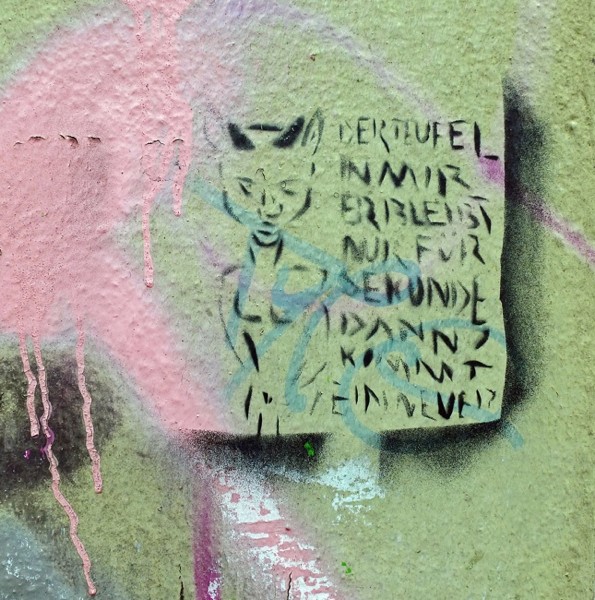 DER TEUFEL
IN MIR
ER BLEIBT
NUR FÜR
SEKUNDE
DANN
KOMMT
EIN NEUER